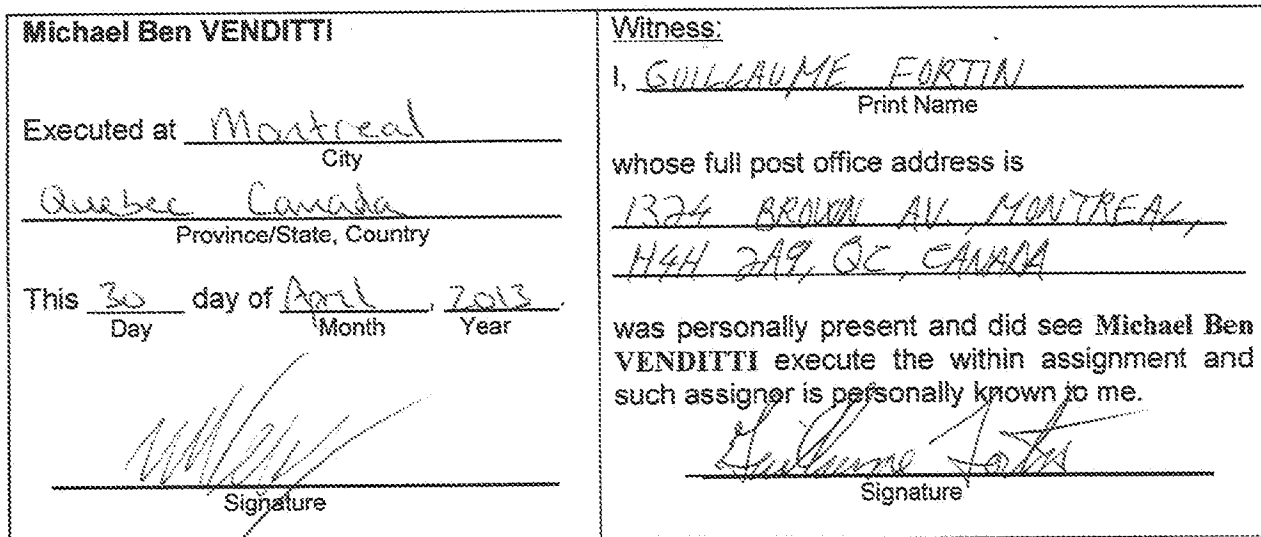 Michael Ben VENDITTI
Executed at Montreal
City
Quebec Canada
Province/State, Country
This 30 day of April, 2013.
Day Month Year
Signature
Witness:
I, GUILLAUME FORTIN
Print Name
whose full post office address is
1324 BROWN AV, MONTREAL,
H4H 2A9, QC, CANADA
was personally present and did see Michael Ben
VENDITTI execute the within assignment and
such assignor is personally known to me.
Guillaume Fortin
Signature